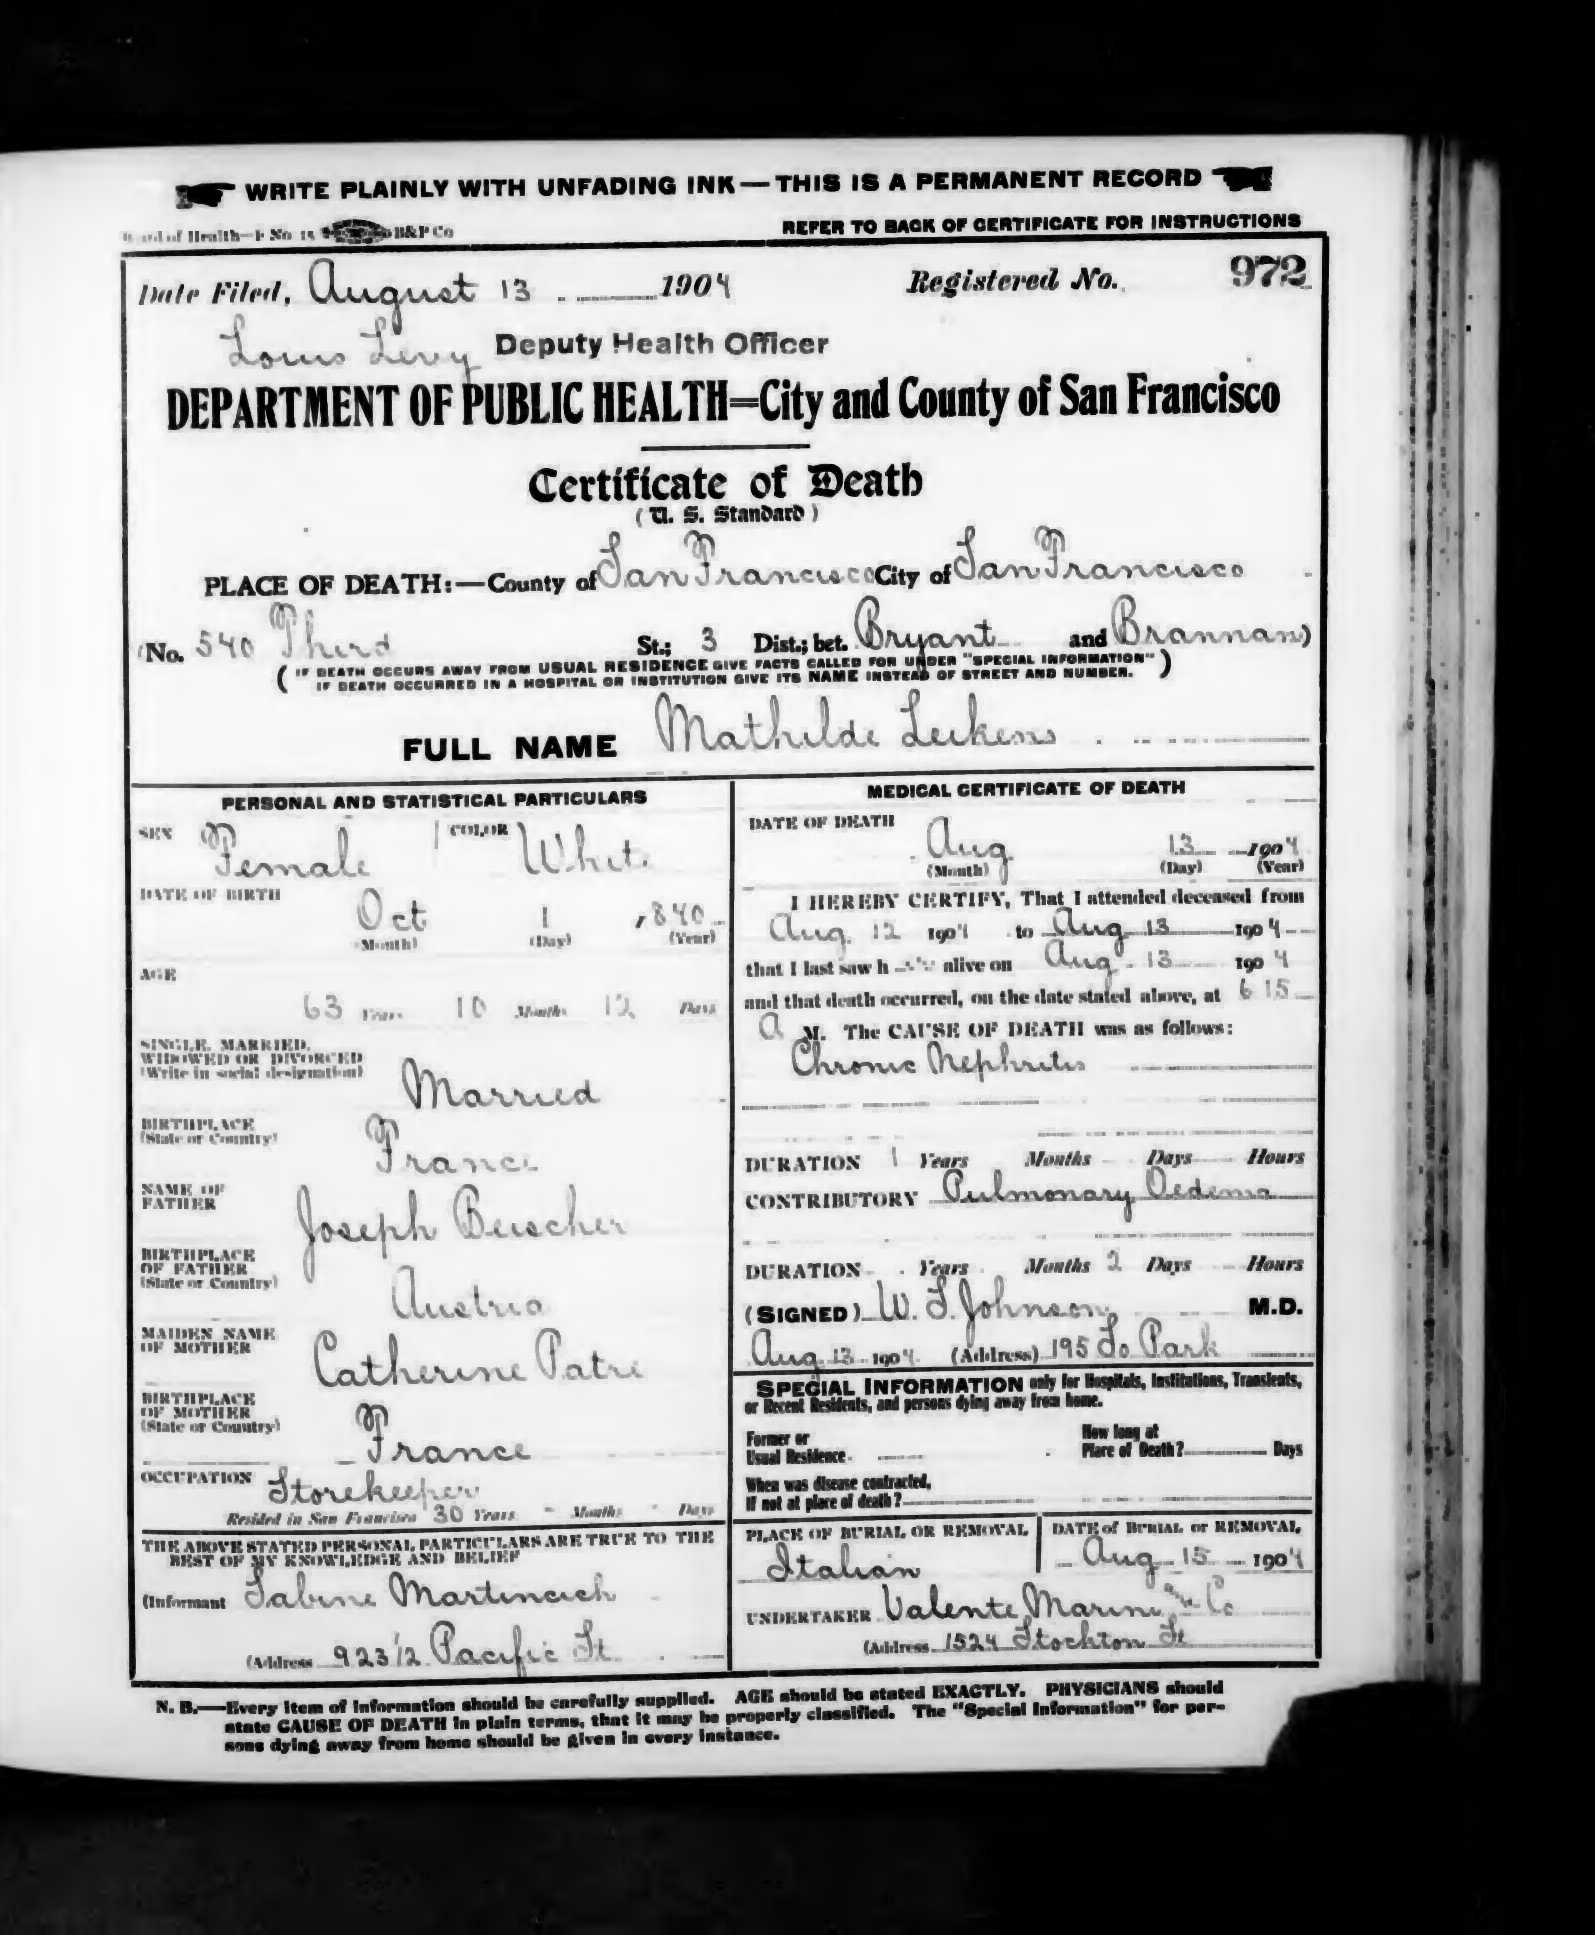 WRITE PLAINLY WITH UNFADING INK — THIS IS A PERMANENT RECORD
Board of Health—F No 15 B&P Co
REFER TO BACK OF CERTIFICATE FOR INSTRUCTIONS
Date Filed, August 13 1904 Registered No. 972
Louis Levy Deputy Health Officer
DEPARTMENT OF PUBLIC HEALTH=City and County of San Francisco
Certificate of Death
(U. S. Standard)
PLACE OF DEATH:—County of San Francisco City of San Francisco
(No. 540 Third St.; 3 Dist.; bet. Bryant and Brannan)
(IF DEATH OCCURS AWAY FROM USUAL RESIDENCE GIVE FACTS CALLED FOR UNDER "SPECIAL INFORMATION"
IF DEATH OCCURRED IN A HOSPITAL OR INSTITUTION GIVE ITS NAME INSTEAD OF STREET AND NUMBER.)
FULL NAME Mathilde Leikens
PERSONAL AND STATISTICAL PARTICULARS
SEX Female COLOR White
DATE OF BIRTH
Oct 1 1840
(Month) (Day) (Year)
AGE
63 Years 10 Months 12 Days
SINGLE, MARRIED,
WIDOWED OR DIVORCED
(Write in social designation)
Married
BIRTHPLACE
(State or Country)
France
NAME OF
FATHER
Joseph Beischer
BIRTHPLACE
OF FATHER
(State or Country)
Austria
MAIDEN NAME
OF MOTHER
Catherine Patri
BIRTHPLACE
OF MOTHER
(State or Country)
France
OCCUPATION Storekeeper
Resided in San Francisco 30 Years - Months - Days
THE ABOVE STATED PERSONAL PARTICULARS ARE TRUE TO THE
BEST OF MY KNOWLEDGE AND BELIEF
(Informant Sabine Martincich
(Address 923 1/2 Pacific St
MEDICAL CERTIFICATE OF DEATH
DATE OF DEATH
Aug 13 1904
(Month) (Day) (Year)
I HEREBY CERTIFY, That I attended deceased from
Aug. 12 1904 to Aug 13 1904
that I last saw h alive on Aug 13 1904
and that death occurred, on the date stated above, at 6 15
A M. The CAUSE OF DEATH was as follows:
Chronic Nephritis
DURATION 1 Years Months Days Hours
CONTRIBUTORY Pulmonary Oedema
DURATION Years Months 2 Days Hours
(SIGNED) W. S. Johnson M.D.
Aug 13 1904 (Address) 195 So Park
SPECIAL INFORMATION only for Hospitals, Institutions, Transients,
or Recent Residents, and persons dying away from home.
Former or
Usual Residence
How long at
Place of Death? Days
When was disease contracted,
If not at place of death?
PLACE OF BURIAL OR REMOVAL
Italian
DATE of BURIAL or REMOVAL
Aug 15 1904
UNDERTAKER Valente Marini Co
(Address 1524 Stockton St
N. B.—Every item of information should be carefully supplied. AGE should be stated EXACTLY. PHYSICIANS should
state CAUSE OF DEATH in plain terms, that it may be properly classified. The "Special Information" for per-
sons dying away from home should be given in every instance.